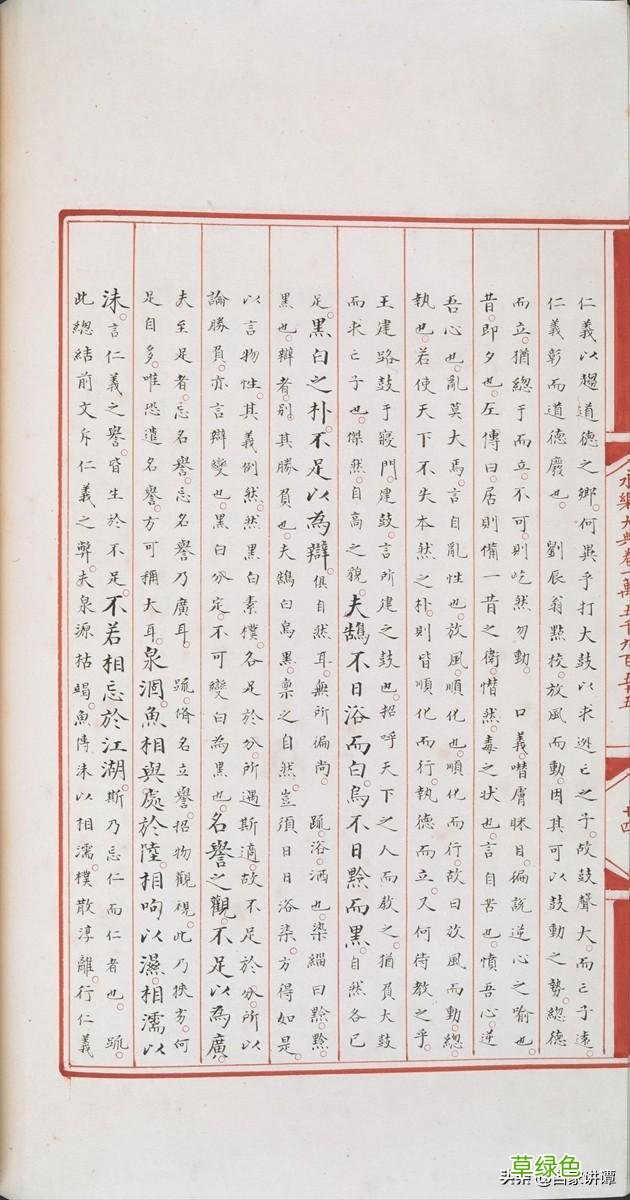 仁義以趨道德之鄉何異乎打大鼓以求逃亡之子故鼓聲大而亡子遠
仁義彰而道德廢也 劉辰翁點校放風而動因其可以鼓動之勢總德
而立猶總于而立不可則屹然勿動 口義噆膚眯目徧說逆心之喻也
昔即夕也左傳曰居則備一昔之衛憯然毒之狀也言自苦也憤吾心逆
吾心也亂莫大焉言自亂性也放風順化也順化而行故曰放風而動總
執也若使天下不失本然之朴則皆順化而行執德而立又何待教之乎
王建路鼓于寢門建鼓言所建之鼓也招呼天下之人而教之猶負大鼓
而求亡子也傑然自高之貌夫鵠不日浴而白烏不日黔而黑自然各已
足黑白之朴不足以為辯俱自然耳無所偏尚 䟽浴洒也染緇曰黔黔
黑也辯者别其勝負也夫鵠白烏黑禀之自然豈須日日浴染方得如是
以言物性其義例然然黑白素樸各足於分所遇斯適故不足於分所以
論勝負亦言辯變也黑白分定不可變白為黑也名譽之觀不足以為廣
夫至足者忘名譽忘名譽乃廣耳 䟽脩名立譽招物觀視此乃狹劣何
足自多唯恐遣名譽方可稱大耳泉涸魚相與處於陸相呴以濕相濡以
沬言仁義之譽皆生於不足不若相忘於江湖斯乃忘仁而仁者也 䟽
此總結前文斥仁義之弊夫泉源枯竭魚傳沬以相濡樸散淳離行仁義
永樂大典卷一萬五千九百五十五
十四
草绿色
头条 @百家讲谭